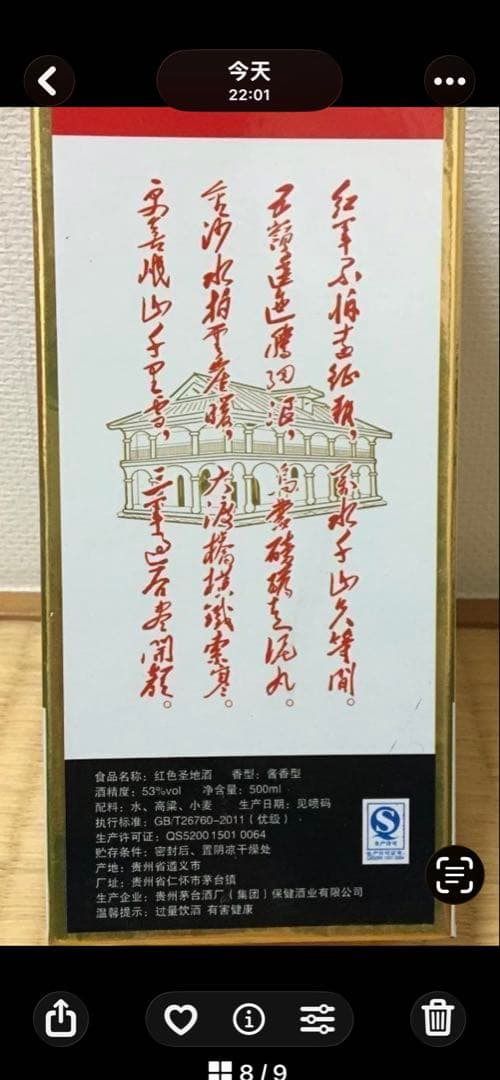 今天
22:01
红军不怕远征难，万水千山只等闲。
五岭逶迤腾细浪，乌蒙磅礴走泥丸。
金沙水拍云崖暖，大渡桥横铁索寒。
更喜岷山千里雪，三军过后尽开颜。
食品名称：红色圣地酒 香型：酱香型
酒精度：53%vol 净含量：500ml
配料：水、高粱、小麦 生产日期：见喷码
执行标准：GB/T26760-2011（优级）
生产许可证：QS5200 1501 0064
贮存条件：密封后、置阴凉干燥处
产地：贵州省遵义市
厂址：贵州省仁怀市茅台镇
生产企业：贵州茅台酒厂（集团）保健酒业有限公司
温馨提示：过量饮酒 有害健康
生产许可
8/9